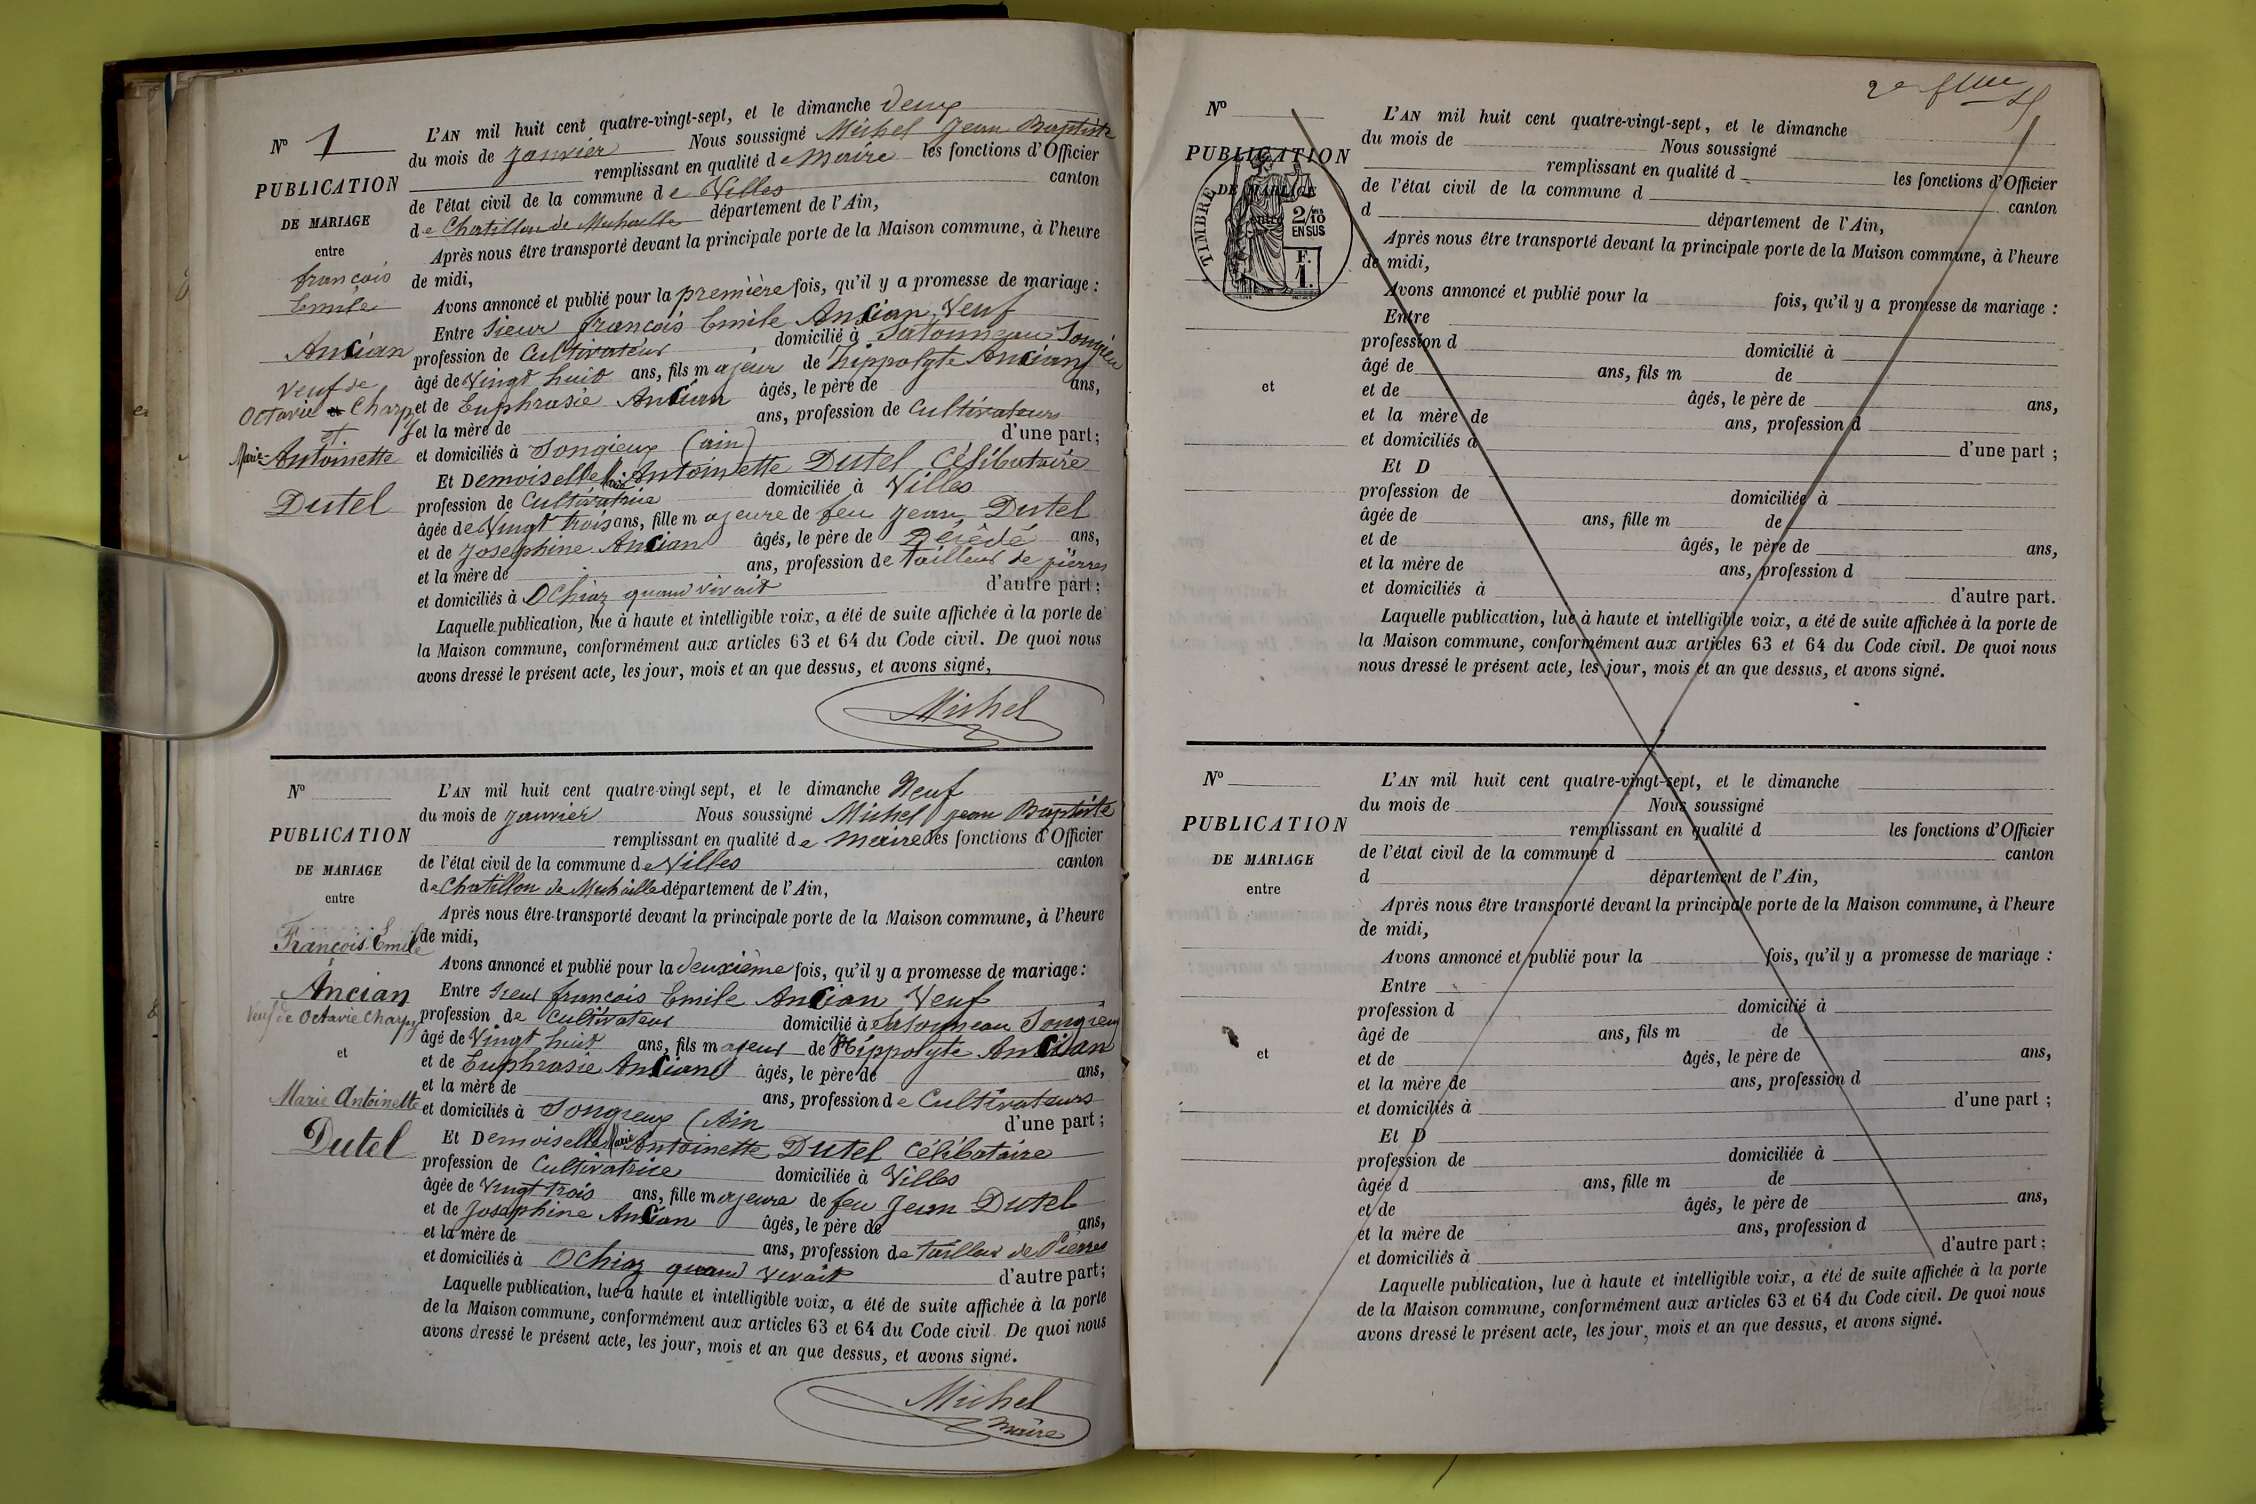 N° 1
PUBLICATION
DE MARIAGE
entre
françois
Emile
Ancian
Veuf de
Octavie Charpy
et
Marie-Antoinette
Dutel
L'AN mil huit cent quatre-vingt-sept, et le dimanche deux
du mois de janvier Nous soussigné Michel Jean Baptiste
remplissant en qualité de Maire les fonctions d'Officier
de l'état civil de la commune de Villes canton
de Chatillon de Michaille département de l'Ain,
Après nous être transporté devant la principale porte de la Maison commune, à l'heure
de midi,
Avons annoncé et publié pour la première fois, qu'il y a promesse de mariage :
Entre Sieur françois Emile Ancian Veuf
profession de Cultivateur domicilié à Songieu
âgé de Vingt huit ans, fils majeur de hippolyte Ancian
et de Euphrasie Ancian âgés, le père de ans,
et la mère de ans, profession de Cultivateurs
et domiciliés à Songieux (ain) d'une part ;
Et Demoiselle Marie Antoinette Dutel Célibataire
profession de Cultivatrice domiciliée à Villes
âgée de Vingt trois ans, fille majeure de feu Jean Dutel
et de Josephine Ancian âgés, le père de Décédé ans,
et la mère de ans, profession de tailleur de pierres
et domiciliés à Ochiaz quand vivait d'autre part ;
Laquelle publication, lue à haute et intelligible voix, a été de suite affichée à la porte de
la Maison commune, conformément aux articles 63 et 64 du Code civil. De quoi nous
avons dressé le présent acte, les jour, mois et an que dessus, et avons signé,
Michel
N°
PUBLICATION
DE MARIAGE
entre
François Emile
Ancian
Veuf de Octavie Charpy
et
Marie Antoinette
Dutel
L'AN mil huit cent quatre-vingt sept, et le dimanche Neuf
du mois de janvier Nous soussigné Michel jean Baptiste
remplissant en qualité de Maire les fonctions d'Officier
de l'état civil de la commune de Villes canton
de Chatillon de Michaille département de l'Ain,
Après nous être transporté devant la principale porte de la Maison commune, à l'heure
de midi,
Avons annoncé et publié pour la deuxième fois, qu'il y a promesse de mariage :
Entre Sieur françois Emile Ancian Veuf
profession de Cultivateur domicilié à Songieu
âgé de Vingt huit ans, fils majeur de Hippolyte Ancian
et de Euphrasie Ancian âgés, le père de ans,
et la mère de ans, profession de Cultivateurs
et domiciliés à Songieux (Ain d'une part ;
Et Demoiselle Marie Antoinette Dutel Célibataire
profession de Cultivatrice domiciliée à Villes
âgée de Vingt trois ans, fille majeure de feu Jean Dutel
et de Josephine Ancian âgés, le père de ans,
et la mère de ans, profession de tailleur de Pierres
et domiciliés à Ochiaz quand vivait d'autre part ;
Laquelle publication, lue à haute et intelligible voix, a été de suite affichée à la porte
de la Maison commune, conformément aux articles 63 et 64 du Code civil. De quoi nous
avons dressé le présent acte, les jour, mois et an que dessus, et avons signé.
Michel
Maire
2e
N°
PUBLICATION
DE MARIAGE
entre
TIMBRE
2/10
EN SUS
F.
1.
et
L'AN mil huit cent quatre-vingt-sept, et le dimanche
du mois de Nous soussigné
remplissant en qualité d les fonctions d'Officier
de l'état civil de la commune d canton
d département de l'Ain,
Après nous être transporté devant la principale porte de la Maison commune, à l'heure
de midi,
Avons annoncé et publié pour la fois, qu'il y a promesse de mariage :
Entre
profession d domicilié à
âgé de ans, fils m de
et de âgés, le père de ans,
et la mère de ans, profession d
et domiciliés à d'une part ;
Et D
profession de domiciliée à
âgée de ans, fille m de
et de âgés, le père de ans,
et la mère de ans, profession d
et domiciliés à d'autre part.
Laquelle publication, lue à haute et intelligible voix, a été de suite affichée à la porte de
la Maison commune, conformément aux articles 63 et 64 du Code civil. De quoi nous
nous dressé le présent acte, les jour, mois et an que dessus, et avons signé.
N°
PUBLICATION
DE MARIAGE
entre
et
L'AN mil huit cent quatre-vingt-sept, et le dimanche
du mois de Nous soussigné
remplissant en qualité d les fonctions d'Officier
de l'état civil de la commune d canton
d département de l'Ain,
Après nous être transporté devant la principale porte de la Maison commune, à l'heure
de midi,
Avons annoncé et publié pour la fois, qu'il y a promesse de mariage :
Entre
profession d domicilié à
âgé de ans, fils m de
et de âgés, le père de ans,
et la mère de ans, profession d
et domiciliés à d'une part ;
Et D
profession de domiciliée à
âgée d ans, fille m de
et de âgés, le père de ans,
et la mère de ans, profession d
et domiciliés à d'autre part ;
Laquelle publication, lue à haute et intelligible voix, a été de suite affichée à la porte
de la Maison commune, conformément aux articles 63 et 64 du Code civil. De quoi nous
avons dressé le présent acte, les jour, mois et an que dessus, et avons signé.